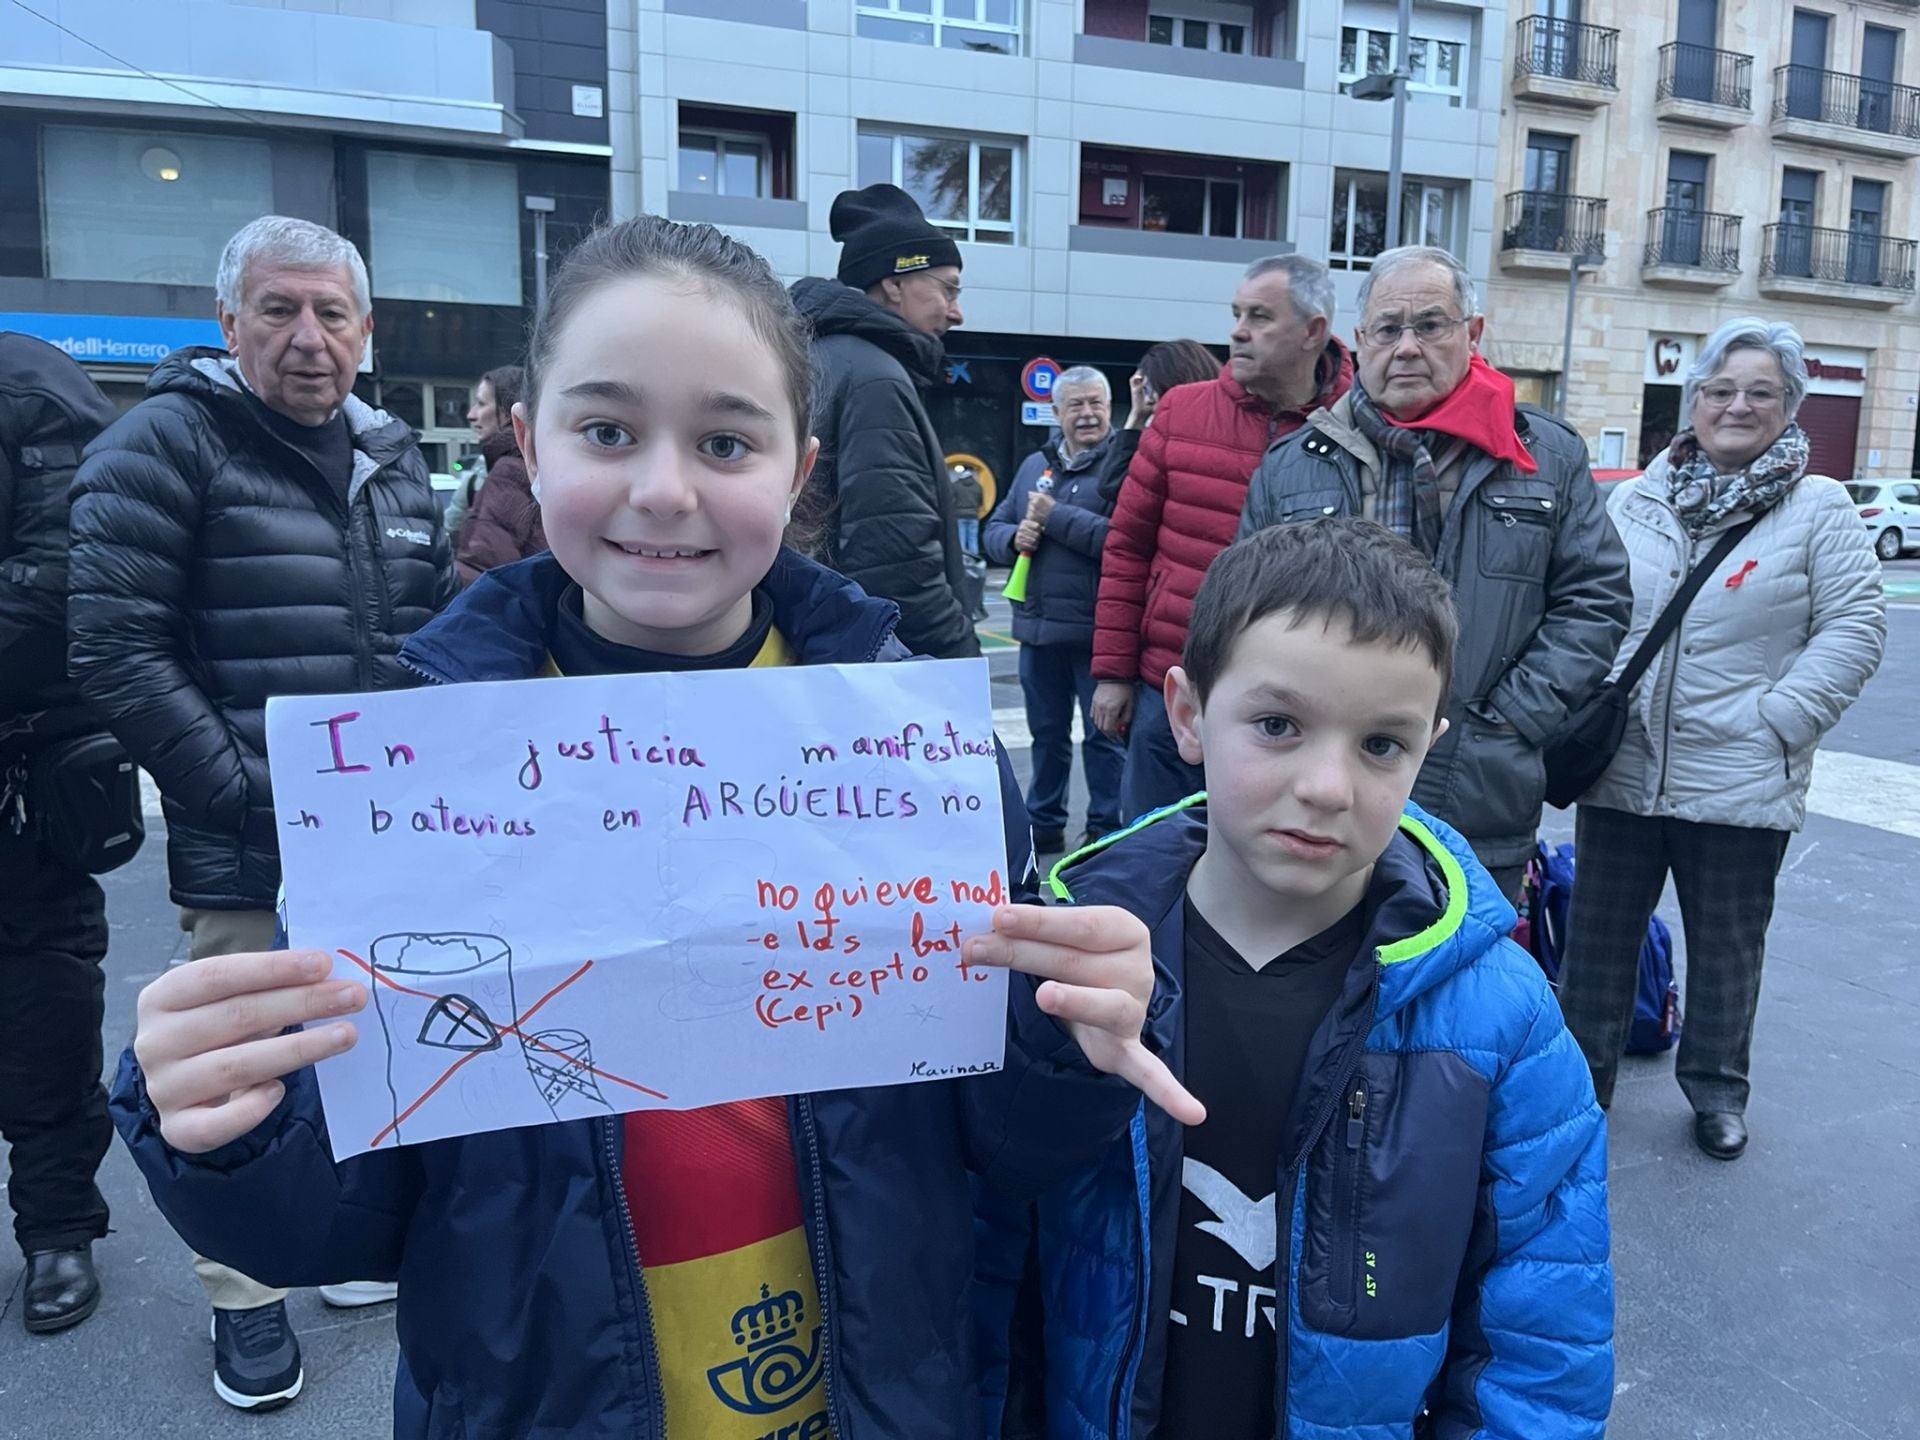 In justicia manifestació
-n baterias en ARGÜELLES no
no quiere nadi
-e las bat
excepto tu
(Cepi)
Marina
Hertz
dellHerrero
Columbia
LTR
AS TA
P